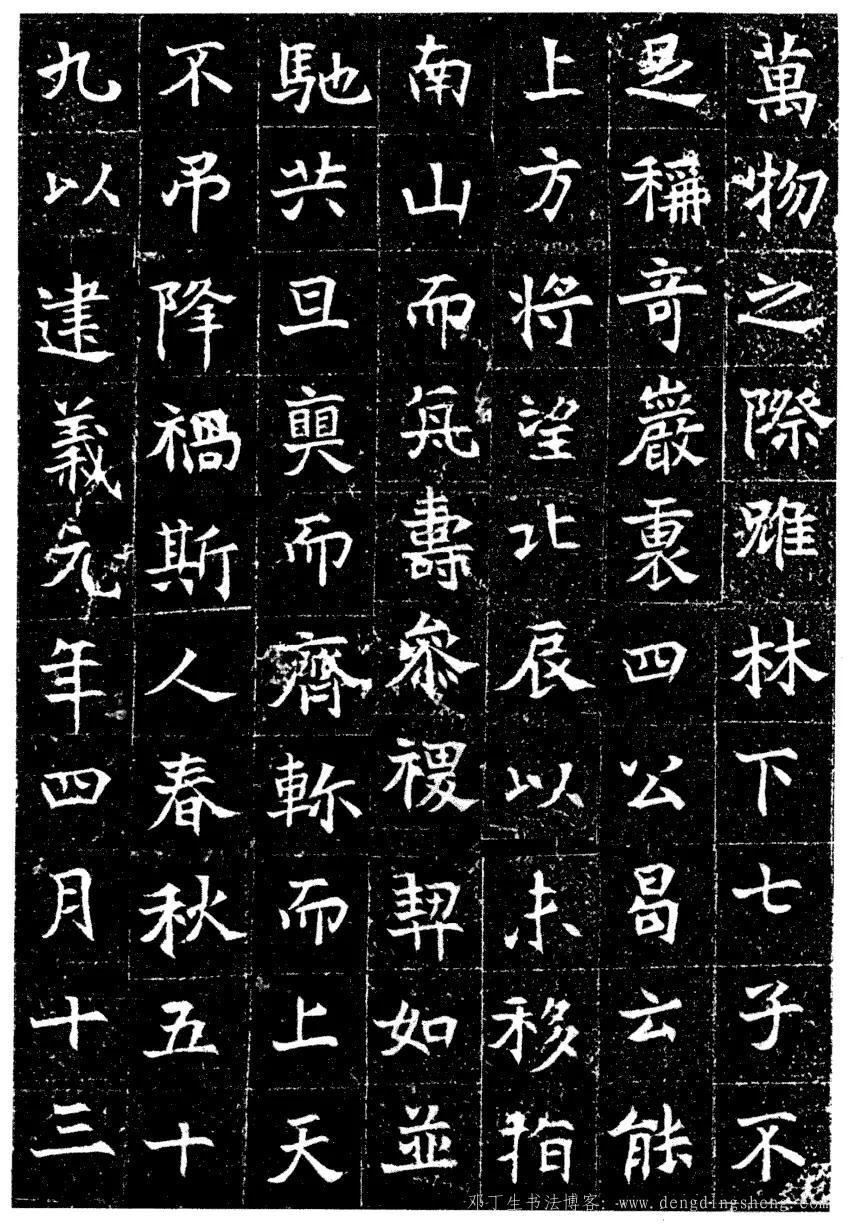 萬物之際雖林下七子不
足稱奇巖裏四公曷云能
上方將望北辰以未移指
南山而壽參稷契如並
馳共旦奭而齊軫而上天
不吊降禍斯人春秋五十
九以建義元年四月十三
邓丁生书法博客: www.dengdingsheng.com